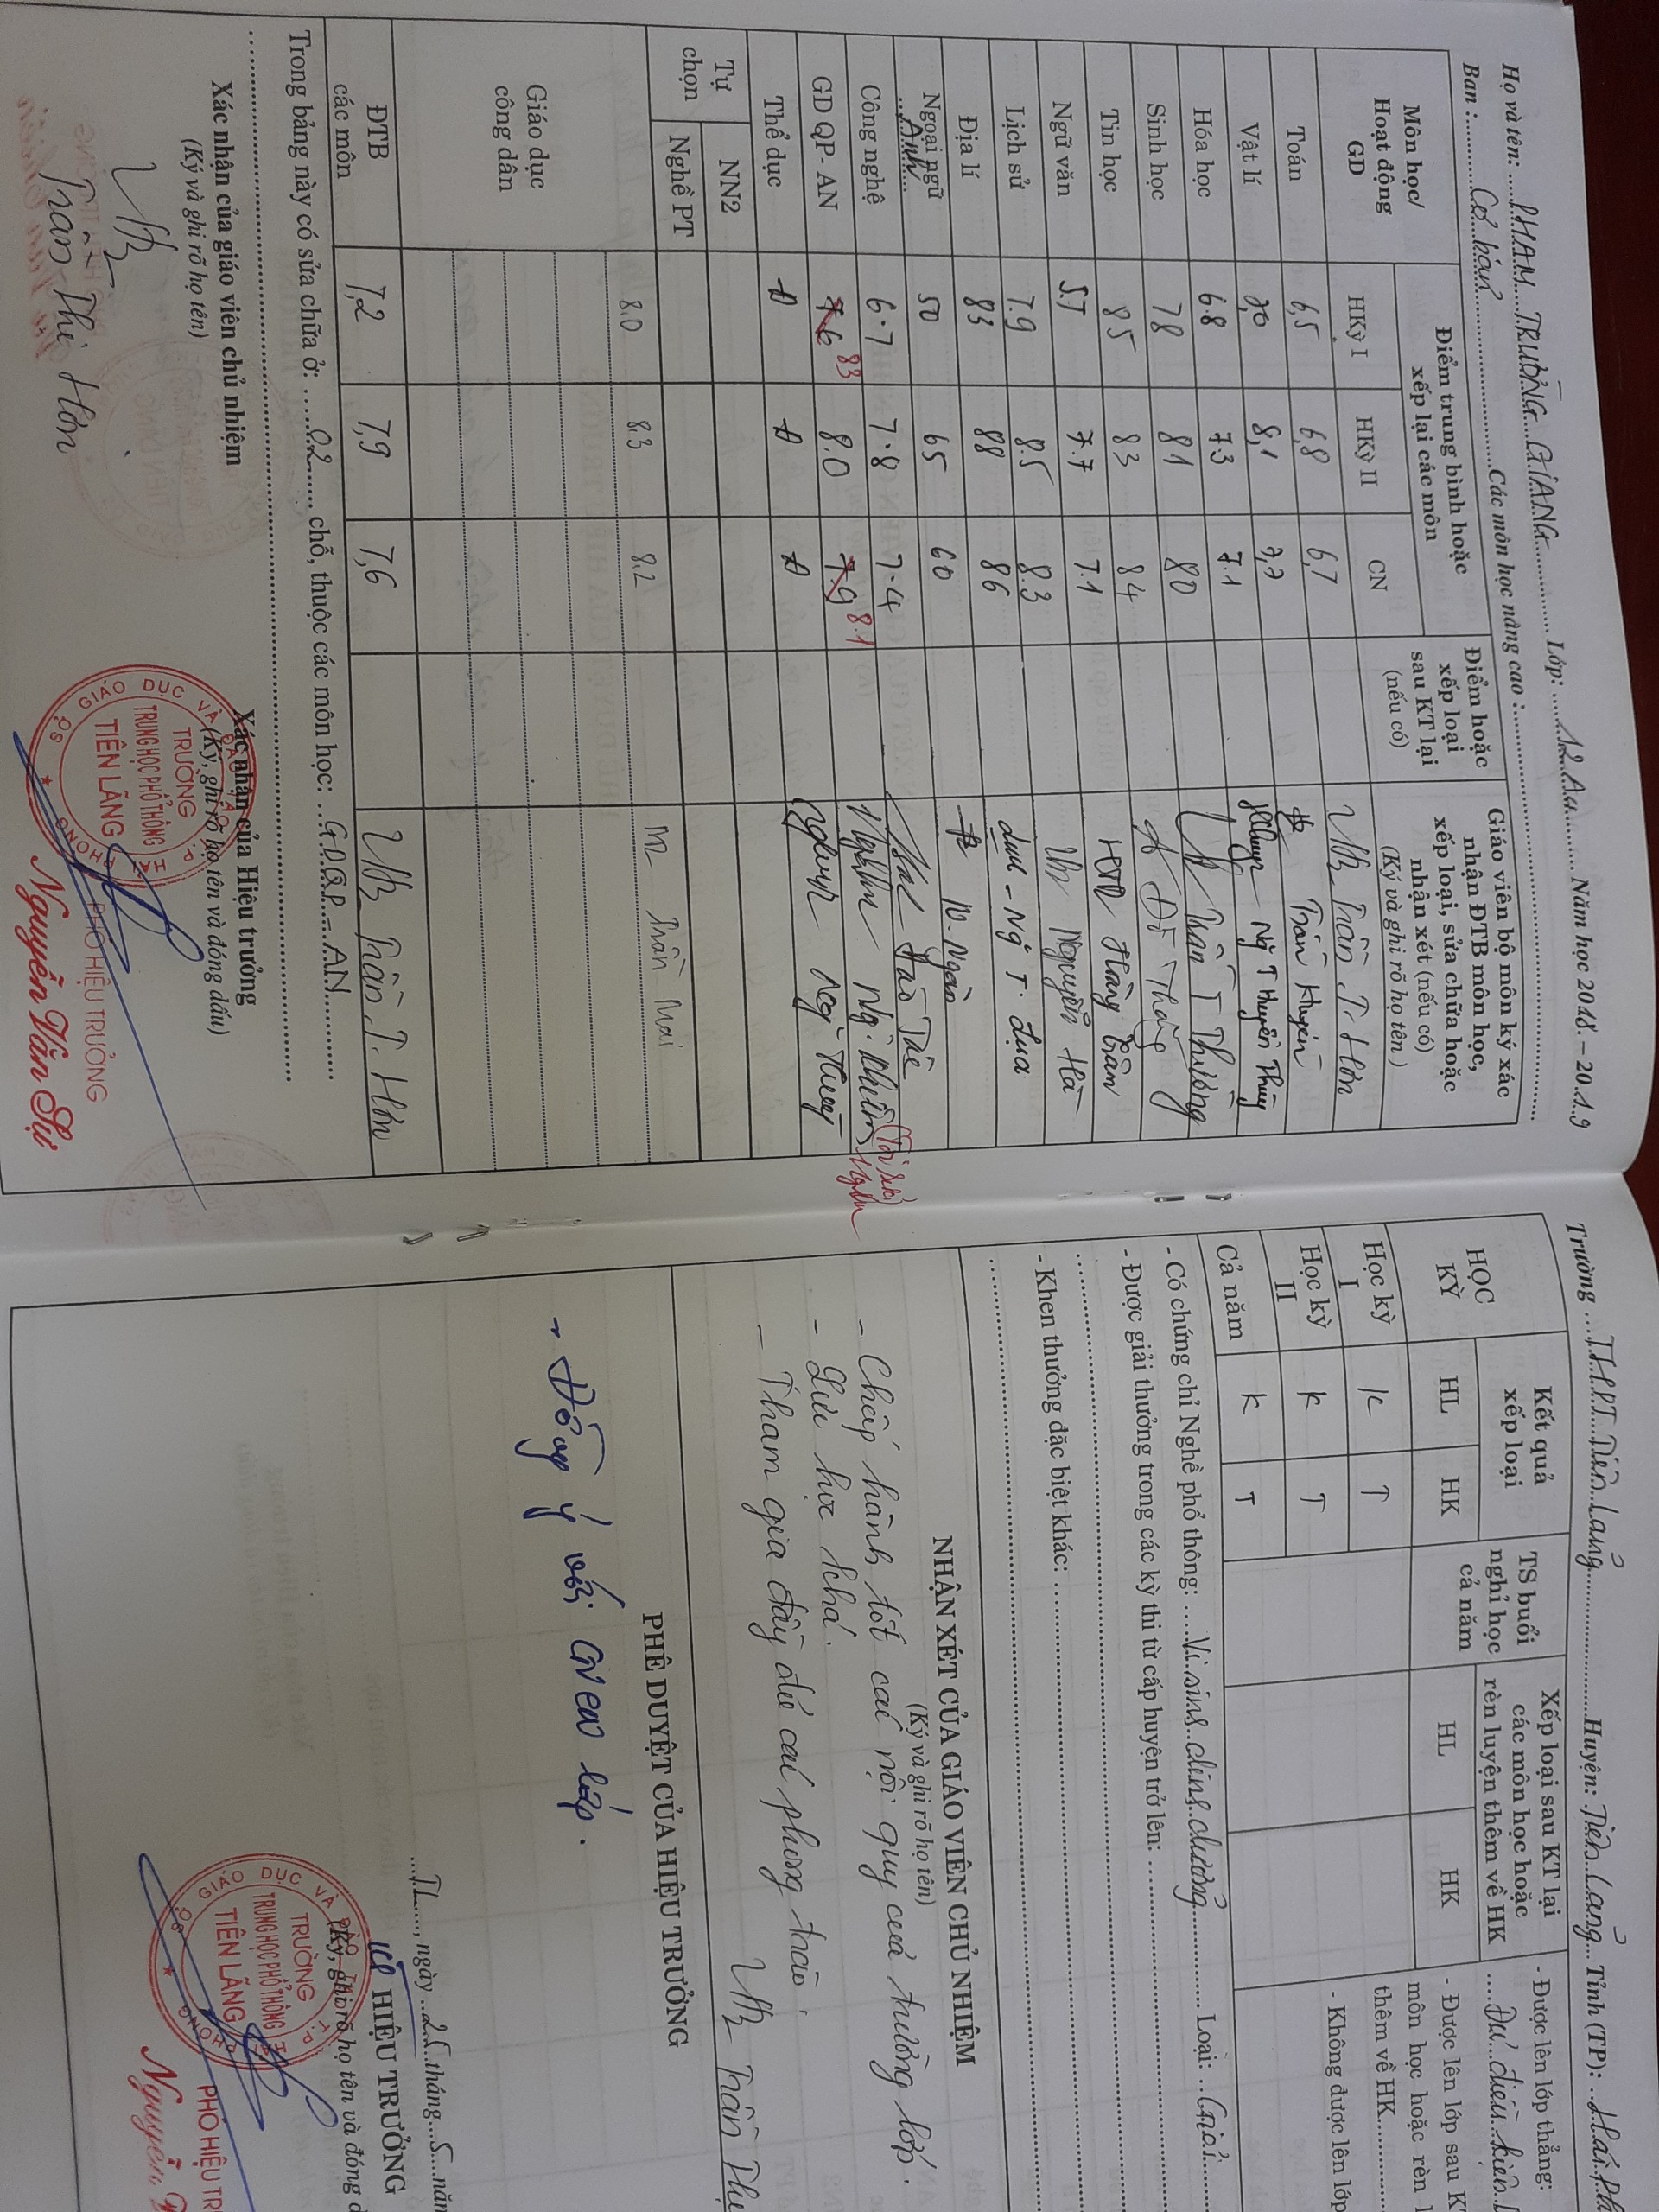 Họ và tên: PHẠM TRƯỜNG GIANG Lớp: 12 A11 Năm học 2018 - 2019
Ban: Cơ bản Các môn học nâng cao:
Môn học/ Hoạt động GD
Điểm trung bình hoặc xếp loại các môn
Điểm hoặc xếp loại sau KT lại (nếu có)
Giáo viên bộ môn ký xác nhận ĐTB môn học, xếp loại, sửa chữa hoặc nhận xét (nếu có) (Ký và ghi rõ họ tên)
HKỳ I HKỳ II CN
Toán 6,5 6,8 6,7 Trần T. Hơn
Vật lí 7,0 8,1 7,7 Trần Huyên
Hóa học 6.8 7.3 7.1 Ng T Huyền Thùy
Sinh học 78 81 80 Trần T Thường
Tin học 85 83 84 Đỗ Thắng
Ngữ văn 5.7 7.7 7.1 Hoàng Trâm
Lịch sử 7.9 8.5 8.3 Nguyễn Hà
Địa lí 83 88 86 Lụa - Ng T. Lụa
Ngoại ngữ Anh 50 65 60 Ngân
Công nghệ 6.7 7.8 7.4 Đào Tảo
GD QP- AN 7.6 83 8.0 7.9 8.1
Thể dục Đ Đ Đ Nguyệt
Tự chọn
NN2
Nghề PT
Giáo dục công dân 8.0 8.3 8.2 Mai
ĐTB các môn 7,2 7,9 7,6 Trần T. Hơn
Trong bảng này có sửa chữa ở: 02 chỗ, thuộc các môn học: GDQP - AN
Xác nhận của giáo viên chủ nhiệm
(Ký và ghi rõ họ tên)
Trần Thị Hơn
Xác nhận của Hiệu trưởng
(Ký, ghi rõ họ tên và đóng dấu)
SỞ GIÁO DỤC VÀ ĐÀO TẠO T.P HẢI PHÒNG
TRƯỜNG
TRUNG HỌC PHỔ THÔNG
TIÊN LÃNG
PHÓ HIỆU TRƯỞNG
Nguyễn Văn Sự
Trường THPT Tiên Lãng Huyện: Tiên Lãng Tỉnh (TP): Hải
HỌC KỲ
Kết quả xếp loại
TS buổi nghỉ học cả năm
Xếp loại sau KT lại các môn học hoặc rèn luyện thêm về HK
HL HK HL HK
Học kỳ I K T
Học kỳ II K T
Cả năm K T
- Được lên lớp thẳng:
Đủ điều kiện
- Được lên lớp sau
môn học hoặc rèn
thêm về HK
- Không được lên lớp
- Có chứng chỉ Nghề phổ thông: Vi sinh dinh dưỡng Loại: Giỏi
- Được giải thưởng trong các kỳ thi từ cấp huyện trở lên:
- Khen thưởng đặc biệt khác:
NHẬN XÉT CỦA GIÁO VIÊN CHỦ NHIỆM
(Ký và ghi rõ họ tên)
- Chấp hành tốt các nội quy của trường lớp.
- Lực học khá.
- Tham gia đầy đủ các phong trào.
Trần Thị
PHÊ DUYỆT CỦA HIỆU TRƯỞNG
- Đồng ý với GVCN lớp.
TL, ngày 25 tháng 5
HIỆU TRƯỞNG
(Ký, ghi rõ họ tên và đóng
SỞ GIÁO DỤC VÀ ĐÀO TẠO T.P HẢI PHÒNG
TRƯỜNG
TRUNG HỌC PHỔ THÔNG
TIÊN LÃNG
PHÓ HIỆU
Nguyễn